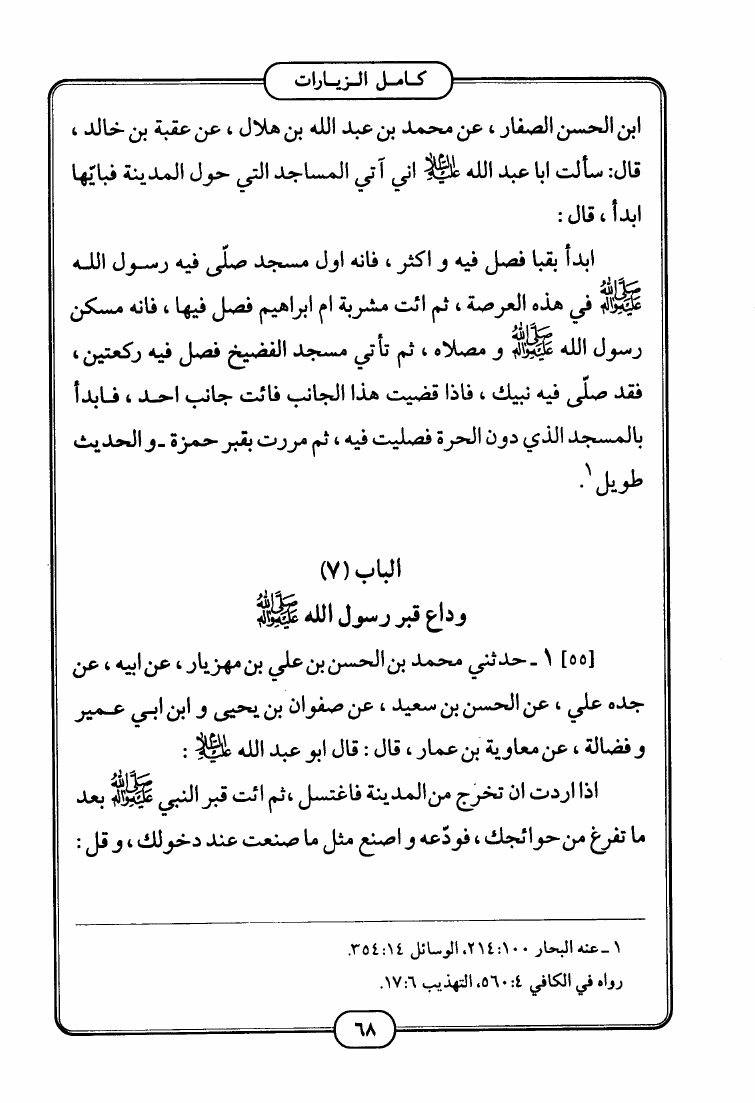 كامل الزيارات
ابن الحسن الصفار ، عن محمد بن عبد الله بن هلال ، عن عقبة بن خالد ،
قال: سألت ابا عبد الله عليه السلام اني آتي المساجد التي حول المدينة فبايّها
ابدأ ، قال :
ابدأ بقبا فصل فيه و اكثر ، فانه اول مسجد صلّى فيه رسول الله
صلى الله عليه وآله في هذه العرصة ، ثم ائت مشربة ام ابراهيم فصل فيها ، فانه مسكن
رسول الله صلى الله عليه وآله و مصلاه ، ثم تأتي مسجد الفضيخ فصل فيه ركعتين ،
فقد صلّى فيه نبيك ، فاذا قضيت هذا الجانب فائت جانب احد ، فابدأ
بالمسجد الذي دون الحرة فصليت فيه ، ثم مررت بقبر حمزة ـ و الحديث
طويل ١.
الباب (٧)
وداع قبر رسول الله صلى الله عليه وآله
[٥٥] ١ ـ حدثني محمد بن الحسن بن علي بن مهزيار ، عن ابيه ، عن
جده علي ، عن الحسن بن سعيد ، عن صفوان بن يحيى و ابن ابي عمير
و فضالة ، عن معاوية بن عمار ، قال : قال ابو عبد الله عليه السلام :
اذا اردت ان تخرج من المدينة فاغتسل ، ثم ائت قبر النبي صلى الله عليه وآله بعد
ما تفرغ من حوائجك ، فودّعه و اصنع مثل ما صنعت عند دخولك ، و قل :
١ ـ عنه البحار ١٠٠: ٢١٤، الوسائل ١٤: ٣٥٤.
رواه في الكافي ٤: ٥٦٠، التهذيب ٦: ١٧.
٦٨